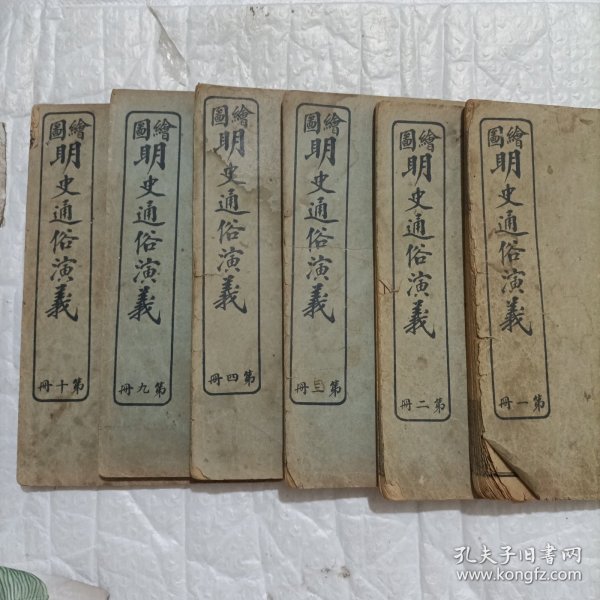 繪圖
明史通俗演義
第一冊
繪圖
明史通俗演義
第二冊
繪圖
明史通俗演義
第三冊
繪圖
明史通俗演義
第四冊
繪圖
明史通俗演義
第九冊
繪圖
明史通俗演義
第十冊
孔夫子旧书网
www.kongfz.com